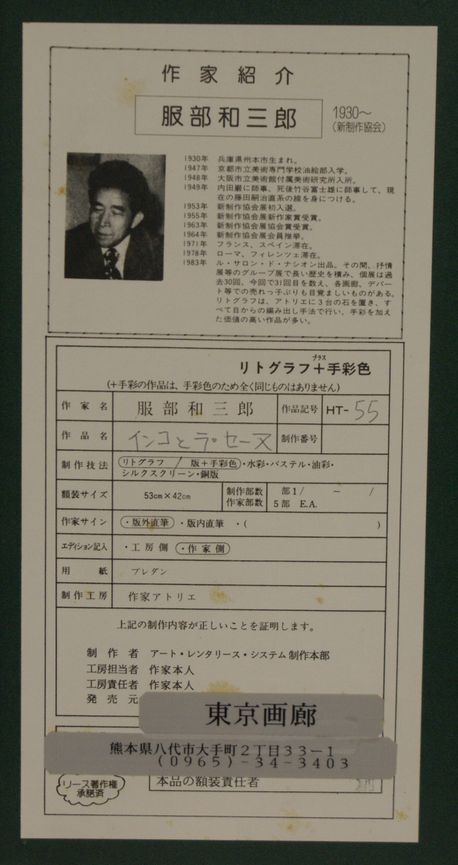 作家紹介
服部和三郎
1930〜
(新制作協会)
1930年 兵庫県州本市生まれ。
1947年 京都市立美術専門学校油絵部入学。
1948年 大阪市立美術館付属美術研究所入所。
1949年 内田巌に師事、死後竹谷富士雄に師事して、現
在の藤田嗣治直系の線を身につける。
1953年 新制作協会展初入選。
1955年 新制作協会展新作家賞受賞。
1963年 新制作協会展協会賞受賞。
1964年 新制作協会展会員推挙。
1971年 フランス、スペイン滞在。
1978年 ローマ、フィレンツェ滞在。
1983年 ル・サロン・ド・ナシオン出品。その間、抒情
展等のグループ展で長い歴史を積み、個展は過
去30回、今回で31回目を数え、各画廊、デパー
ト等での売れっ子ぶりも目覚ましいものがある。
リトグラフは、アトリエに3台の石を置き、す
べて自からの編み出し手法で行い、手彩を加え
た価値の高い作品が多い。
プラス
リトグラフ+手彩色
(+手彩の作品は、手彩色のため全く同じものはありません)
作家名 服部和三郎 作品記号 HT-55
作品名 インコとラ・セーヌ 制作番号
制作技法 (リトグラフ / 版+手彩色)・水彩・パステル・油彩・
シルクスクリーン・銅版
額装サイズ 53cm×42cm 制作部数 部1/ 〜 /
作家部数 5部 E.A.
作家サイン (・版外直筆)・版内直筆・( )
エディション記入 ・工房側 (・作家側)
用紙 ブレダン
制作工房 作家アトリエ
上記の制作内容が正しいことを証明します。
制作者 アート・レンタリース・システム制作本部
工房担当者 作家本人
工房責任者 作家本人
発売元
東京画廊
熊本県八代市大手町2丁目33-1
(0965)-34-3403
リース著作権
承諾済
本品の額装責任者